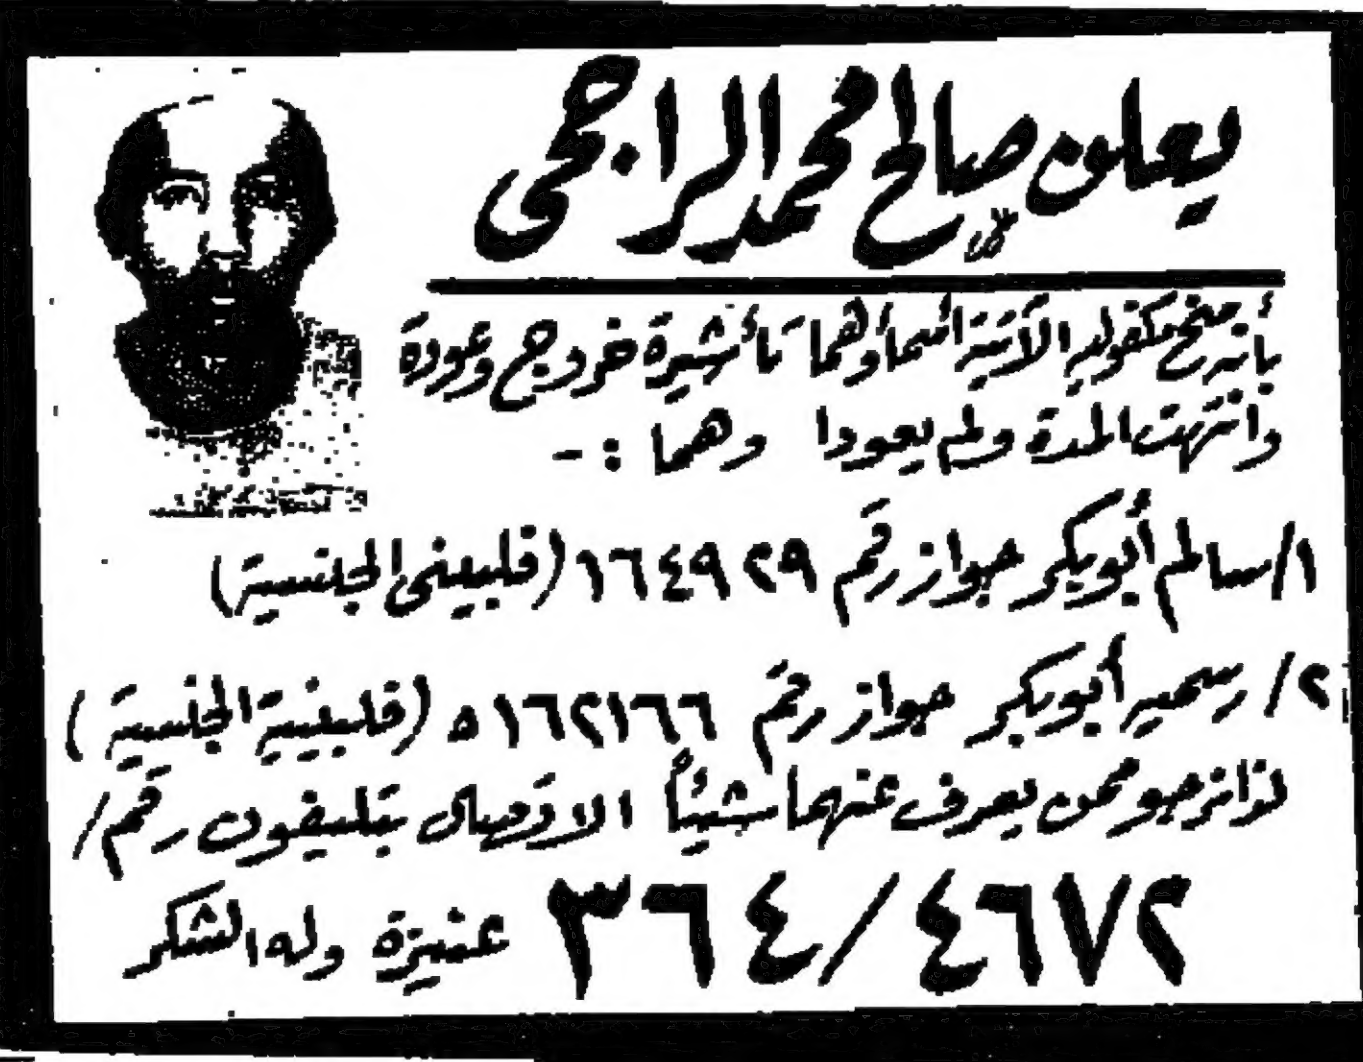 يعلن صالح محمد الراجحى
بأنه منح مكفوليه الآتية اسماؤهما تأشيرة خروج وعودة
وانتهت المدة ولم يعودا وهما : -
١/ سالم أبوبكر جواز رقم ١٦٤٩٢٩ (فلبينى الجنسية)
٢/ سمير أبوبكر جواز رقم ٥١٦٢١٦٦ (فلبينية الجنسية)
لذا نرجو ممن يعرف عنهما شيئاً الاتصال بتليفون رقم /
٣٦٤/٤٦٧٢ عنيزة وله الشكر